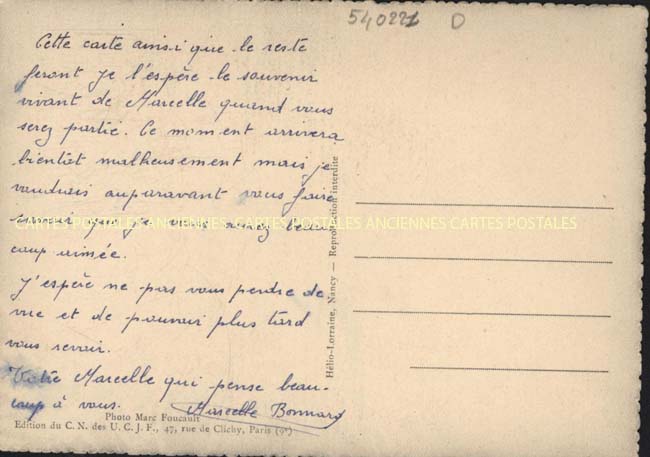 540221 D
Cette carte ainsi que le reste
feront je l'espère le souvenir
vivant de Marcelle quand vous
serez partie. Ce moment arrivera
bientôt malheusement mais je
voudrais auparavant vous faire
savoir que je vous aimez beau
coup aimée.
J'espère ne pas vous perdre de
vue et de pouvoir plus tard
vous revoir.
Votre Marcelle qui pense beau-
coup à vous. Marcelle Bonnard
Photo Marc Foucault
Edition du C. N. des U. C. J. F., 47, rue de Clichy, Paris (9e)
Hélio-Lorraine, Nancy — Reproduction interdite
CARTES POSTALES ANCIENNES CARTES POSTALES ANCIENNES CARTES POSTALES